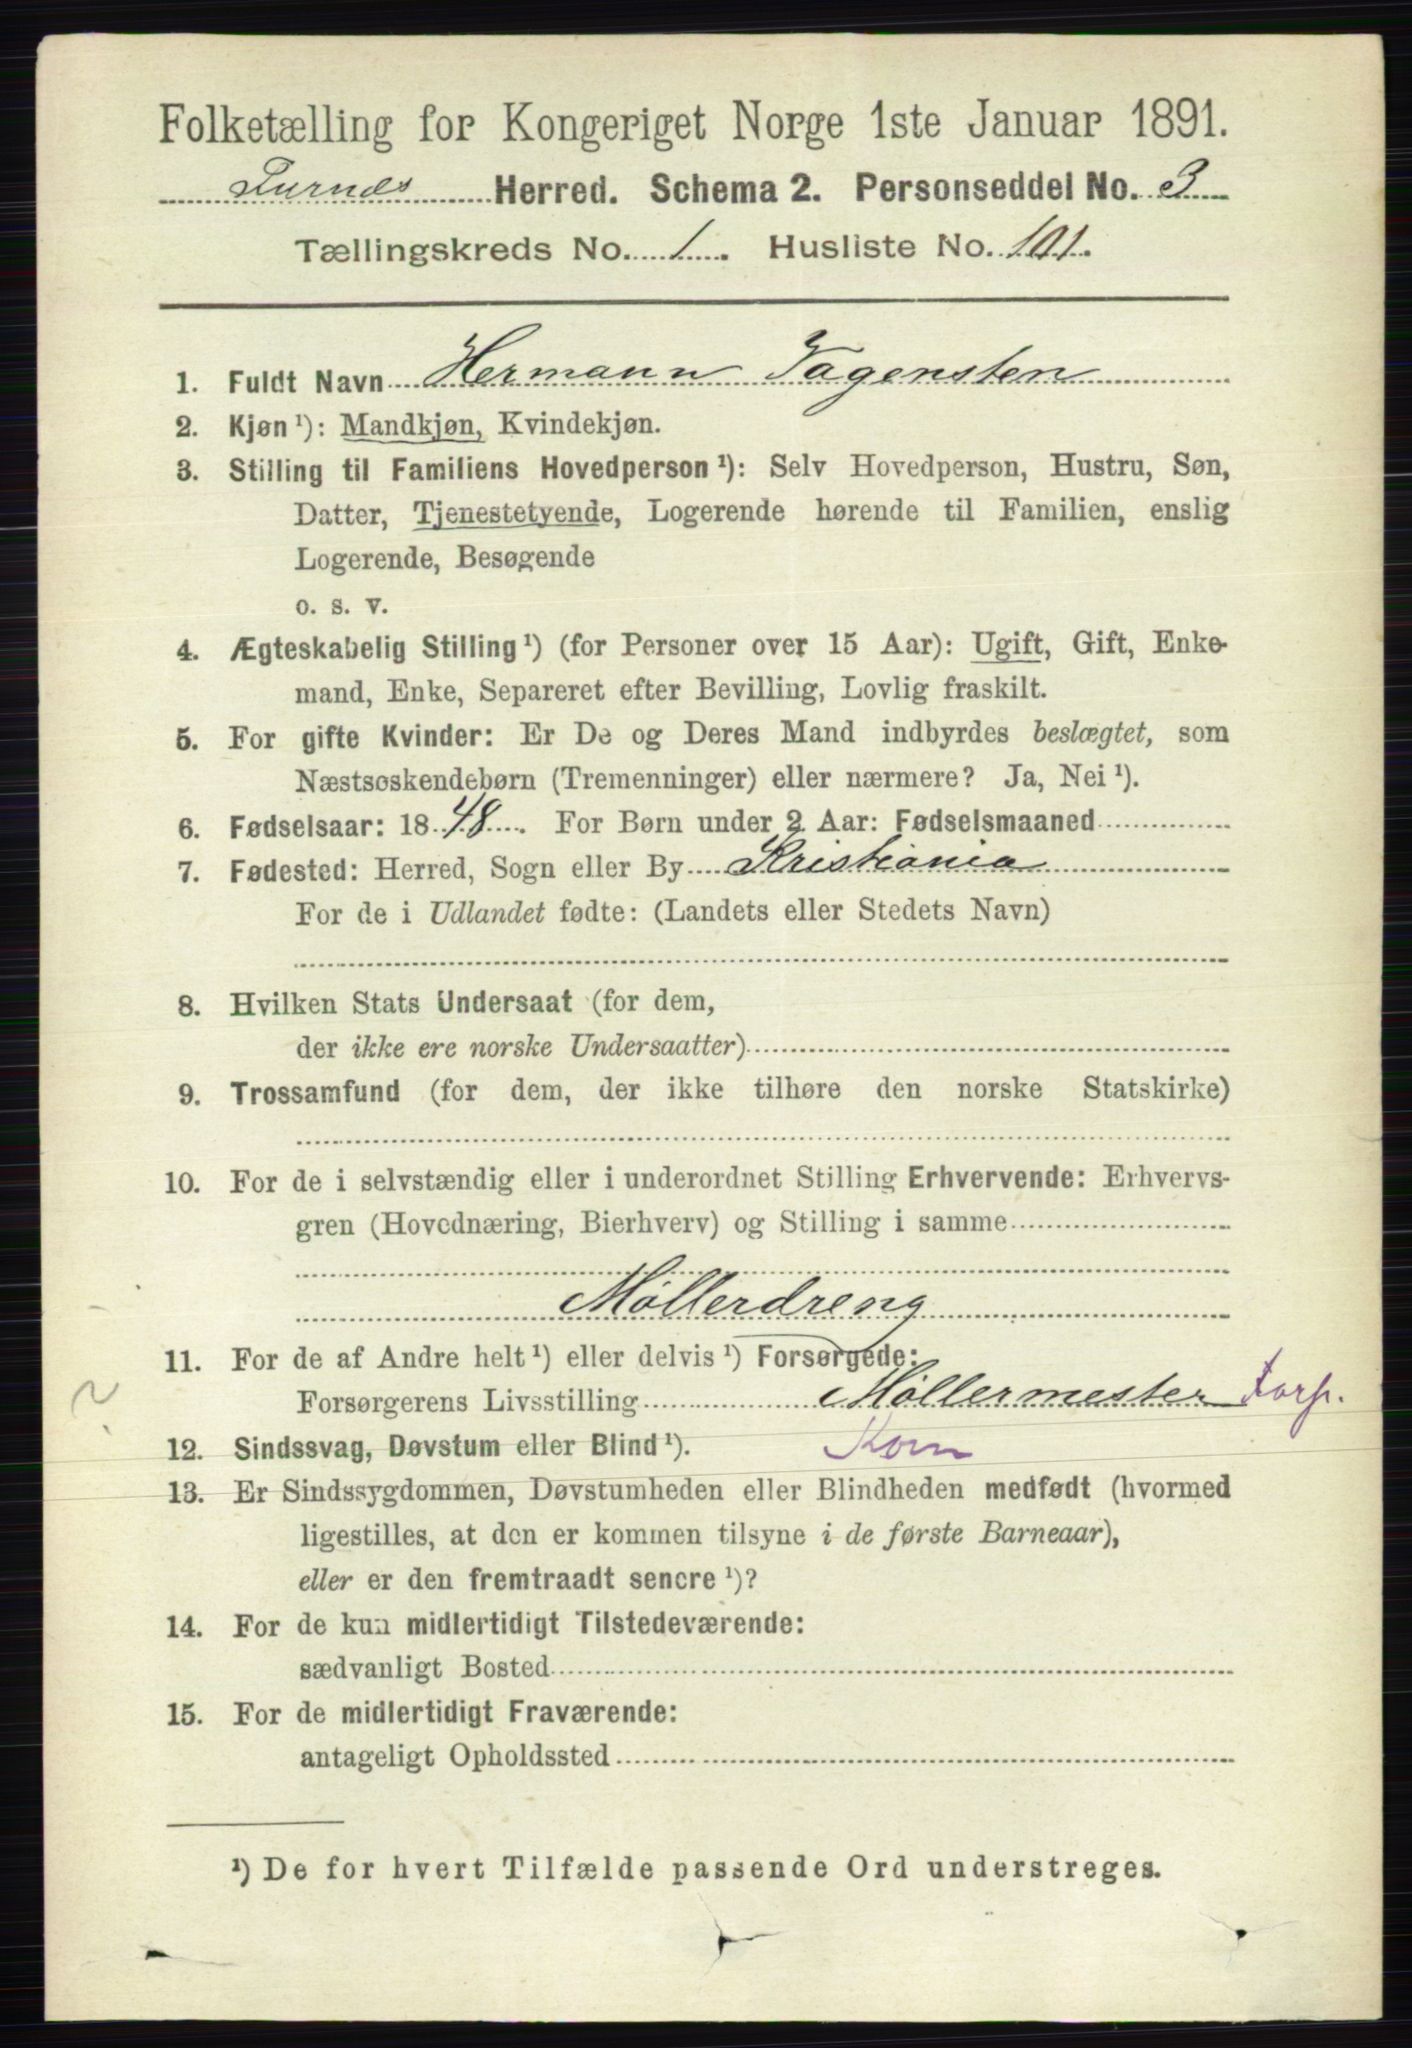 Folketælling for Kongeriget Norge 1ste Januar 1891.
Furnes Herred. Schema 2. Personseddel No. 3
Tællingskreds No. 1. Husliste No. 101.
1. Fuldt Navn Hermann Fagensten
2. Kjøn ¹): Mandkjøn, Kvindekjøn.
3. Stilling til Familiens Hovedperson ¹): Selv Hovedperson, Hustru, Søn,
Datter, Tjenestetyende, Logerende hørende til Familien, enslig
Logerende, Besøgende
o. s. v.
4. Ægteskabelig Stilling ¹) (for Personer over 15 Aar): Ugift, Gift, Enke-
mand, Enke, Separeret efter Bevilling, Lovlig fraskilt.
5. For gifte Kvinder: Er De og Deres Mand indbyrdes beslægtet, som
Næstsøskendebørn (Tremenninger) eller nærmere? Ja, Nei ¹).
6. Fødselsaar: 1848. For Børn under 2 Aar: Fødselsmaaned
7. Fødested: Herred, Sogn eller By Kristiania
For de i Udlandet fødte: (Landets eller Stedets Navn)
8. Hvilken Stats Undersaat (for dem,
der ikke ere norske Undersaatter)
9. Trossamfund (for dem, der ikke tilhøre den norske Statskirke)
10. For de i selvstændig eller i underordnet Stilling Erhvervende: Erhvervs-
gren (Hovednæring, Bierhverv) og Stilling i samme
Møllerdreng
11. For de af Andre helt ¹) eller delvis ¹) Forsørgede:
Forsørgerens Livsstilling Møllermester Forsp.
12. Sindssvag, Døvstum eller Blind ¹). Korn
13. Er Sindssygdommen, Døvstumheden eller Blindheden medfødt (hvormed
ligestilles, at den er kommen tilsyne i de første Barneaar),
eller er den fremtraadt senere ¹)?
14. For de kun midlertidigt Tilstedeværende:
sædvanligt Bosted
15. For de midlertidigt Fraværende:
antageligt Opholdssted
¹) De for hvert Tilfælde passende Ord understreges.